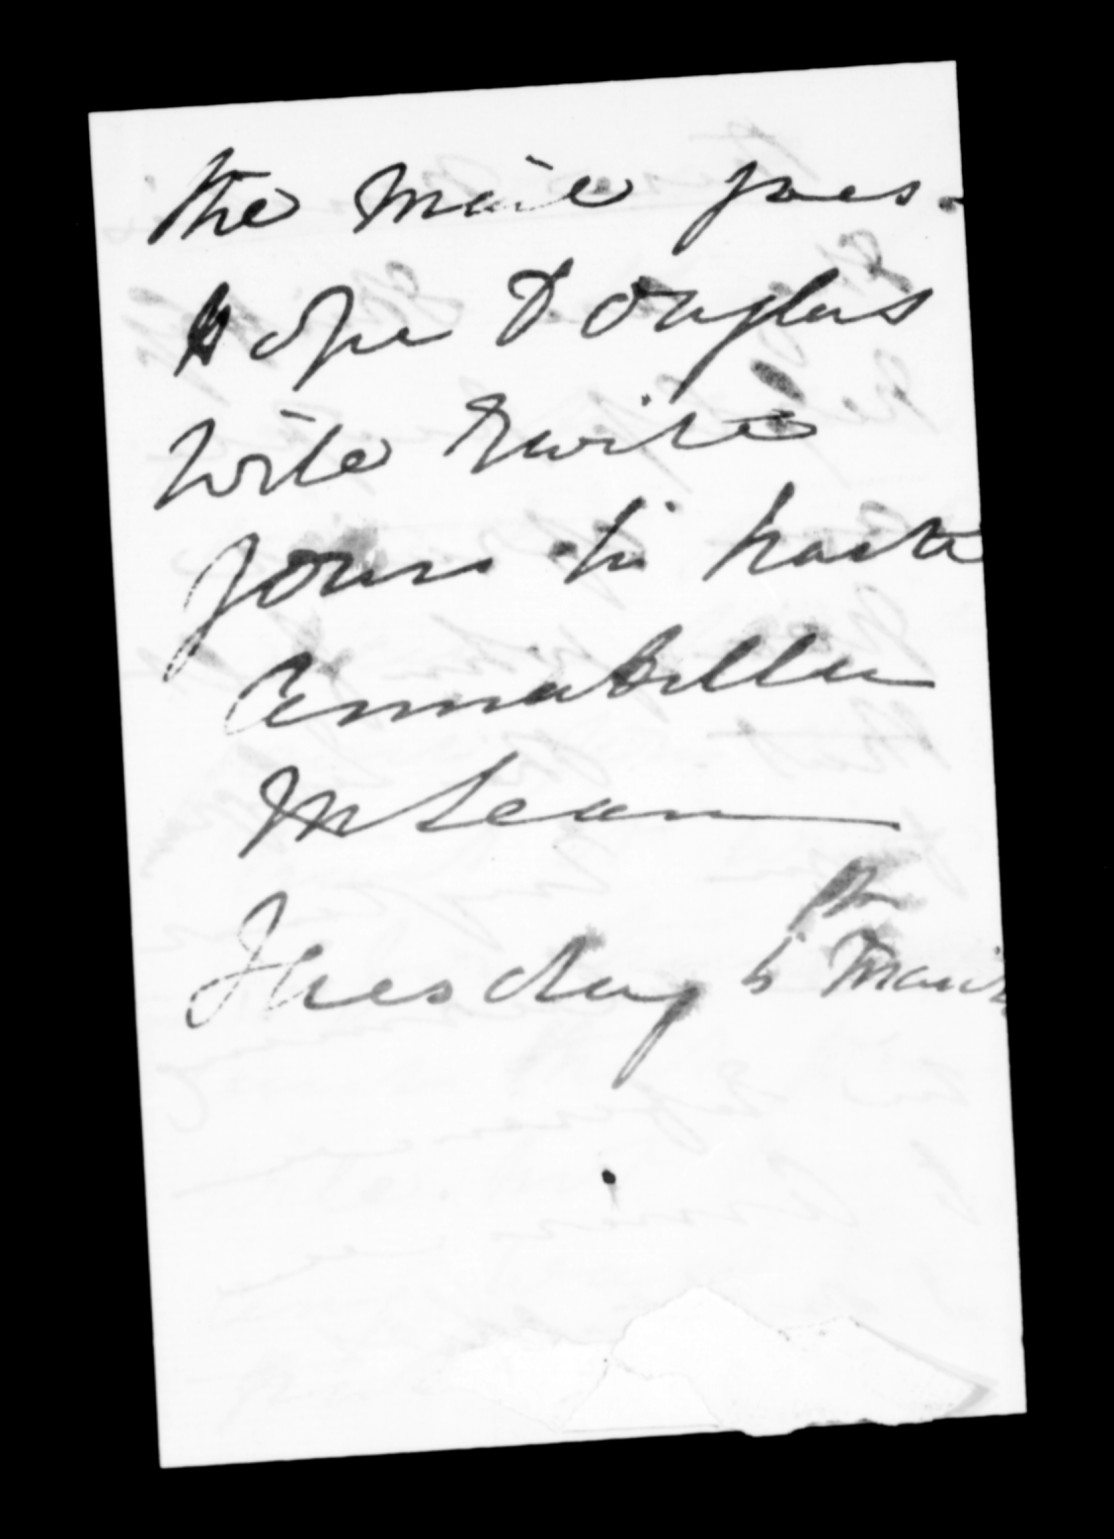 the mail goes.
hope Douglas
will write
Yours in haste
Annabella
McLean
Tuesday 5th March